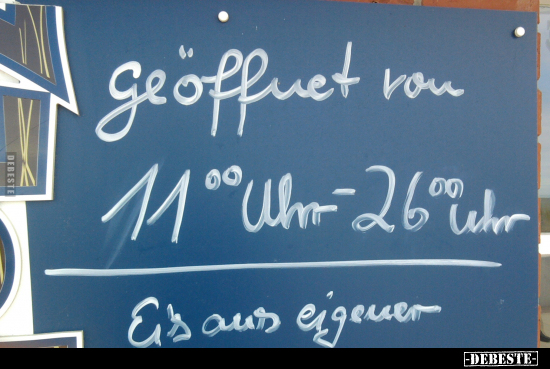 geöffnet von
11⁰⁰ Uhr - 26⁰⁰ Uhr
Eis aus eigener
DEBESTE
-DEBESTE-